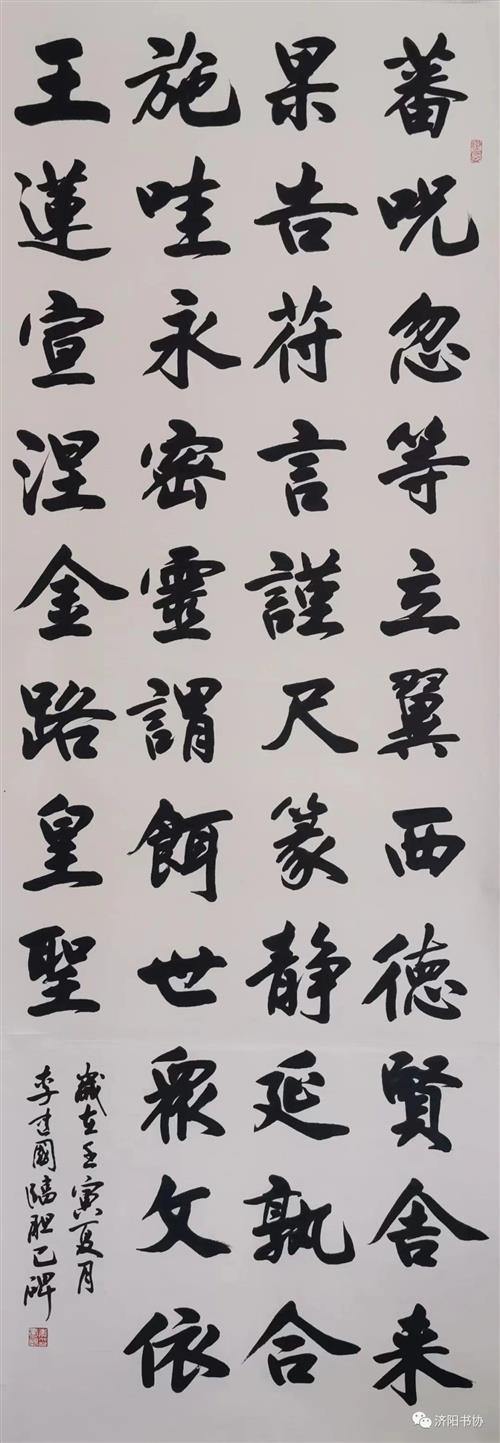 蕃呪忽等立翼西德賢舍来
果告符言謹尺篆静延孰合
施哇永密靈謂餌世眾文依
王蓮宣涅金路皇聖
歲在壬寅夏月
李建國臨胆巴碑
济阳书协